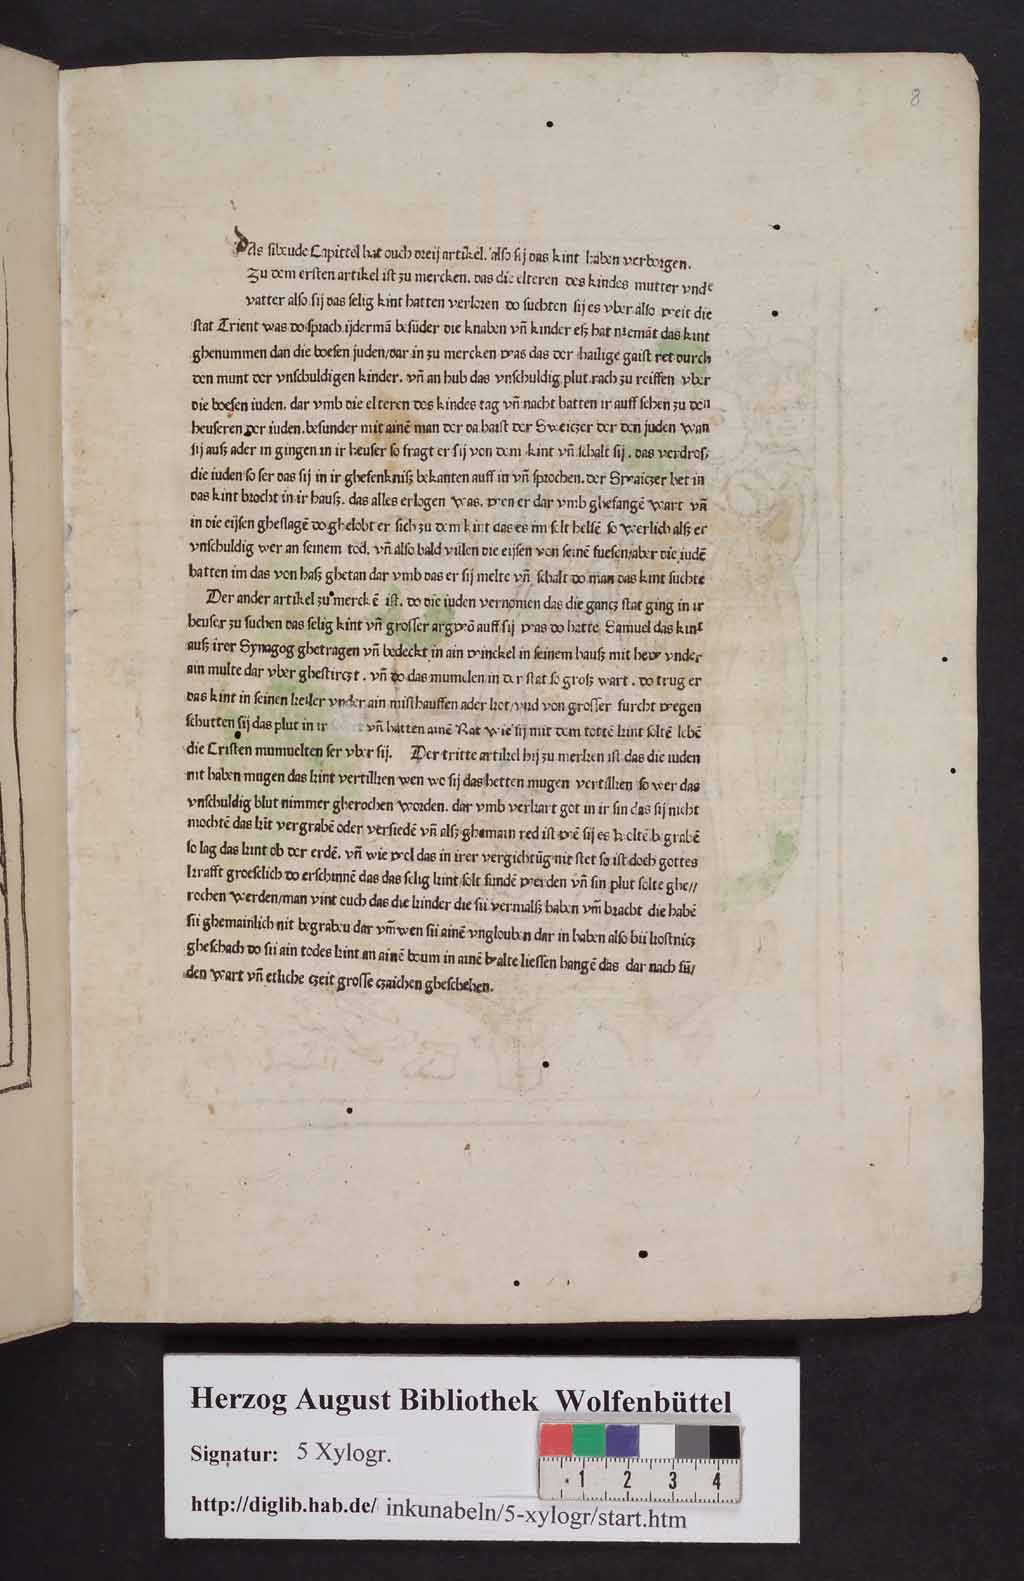 8
Das sibende Capittel hat ouch dreij artikel. also sij das kint haben verborgen.
Zu dem ersten artikel ist zu mercken. das die elteren des kindes mutter vnde
vatter also sij das selig kint hatten verloren do suchten sij es vber also weit die
stat Trient was do sprach ijdermā besūder die knaben vñ kinder esz hat niemāt das kint
ghenummen dan die boesen juden/dar in zu mercken was das der hailige gaist ret durch
den munt der vnschuldigen kinder. vñ an hub das vnschuldig plut rach zu reiffen vber
die boesen iuden. dar vmb die elteren des kindes tag vñ nacht hatten ir auff sehen zu den
heuseren der iuden. besunder mit ainē man der da haist der Sweiczer der den juden wan
sij ausz ader in gingen in ir heuser so fragt er sij von dem kint vñ schalt sij. das verdros
die iuden so ser das sij in ir ghefenknisz bekanten auff in vñ sprochen. der Swaiczer het in
das kint brocht in ir hausz. das alles erlogen was. wen er dar vmb ghefangē wart vñ
in die eijsen gheslagē do ghelobt er sich zu dem kint das es im solt helfē so werlich alsz er
vnschuldig wer an seinem tod. vñ also bald villen die eijsen von seinē fuesen/aber die iudē
hatten im das von hasz ghetan dar vmb das er sij melte vñ schalt do man das kint suchte
Der ander artikel zu merckē ist. do die iuden vernomen das die gancz stat ging in ir
heuser zu suchen das selig kint vñ grosser argwō auff sij was do hatte Samuel das kint
ausz irer Synagog ghetragen vñ bedeckt in ain winckel in seinem hausz mit hew vnder
ain multe dar vber ghestirczt. vñ do das mumelen in der stat so grosz wart. do trug er
das kint in seinen keller vnder ain misthauffen ader kot/vnd von grosser furcht wegen
schutten sij das plut in ir vñ hatten ainē Rat wie sij mit dem tottē kint soltē lebē
die Cristen mumuelten ser vber sij. Der tritte artikel hij zu merken ist das die iuden
nit haben mugen das kint vertilken wen wo sij das hetten mugen vertilken so wer das
vnschuldig blut nimmer gherochen worden. dar vmb verkart got in ir sin das sij nicht
mochtē das kīt vergrabē oder versiedē vñ alsz ghemain red ist wē sij es heltē begrabē
so lag das kint ob der erdē. vñ wie wel das in irer vergichtūg nit stet so ist doch gottes
krafft groeslich do erschinnē das das selig kint solt fundē werden vñ sin plut solte ghe//
rochen werden/man vint ouch das die kinder die sii vermalsz haben vm̄ bracht die habē
sii ghemainlich nit begraben dar vm̄ wen sii ainē vnglouben dar in haben also bii kostnicz
gheschach do sii ain todes kint an ainē boum in ainē walte liessen hangē das dar nach fū/
den wart vñ etliche czeit grosse czaichen gheschehen.
Herzog August Bibliothek Wolfenbüttel
Signatur: 5 Xylogr.
1 2 3 4
http://diglib.hab.de/ inkunabeln/5-xylogr/start.htm